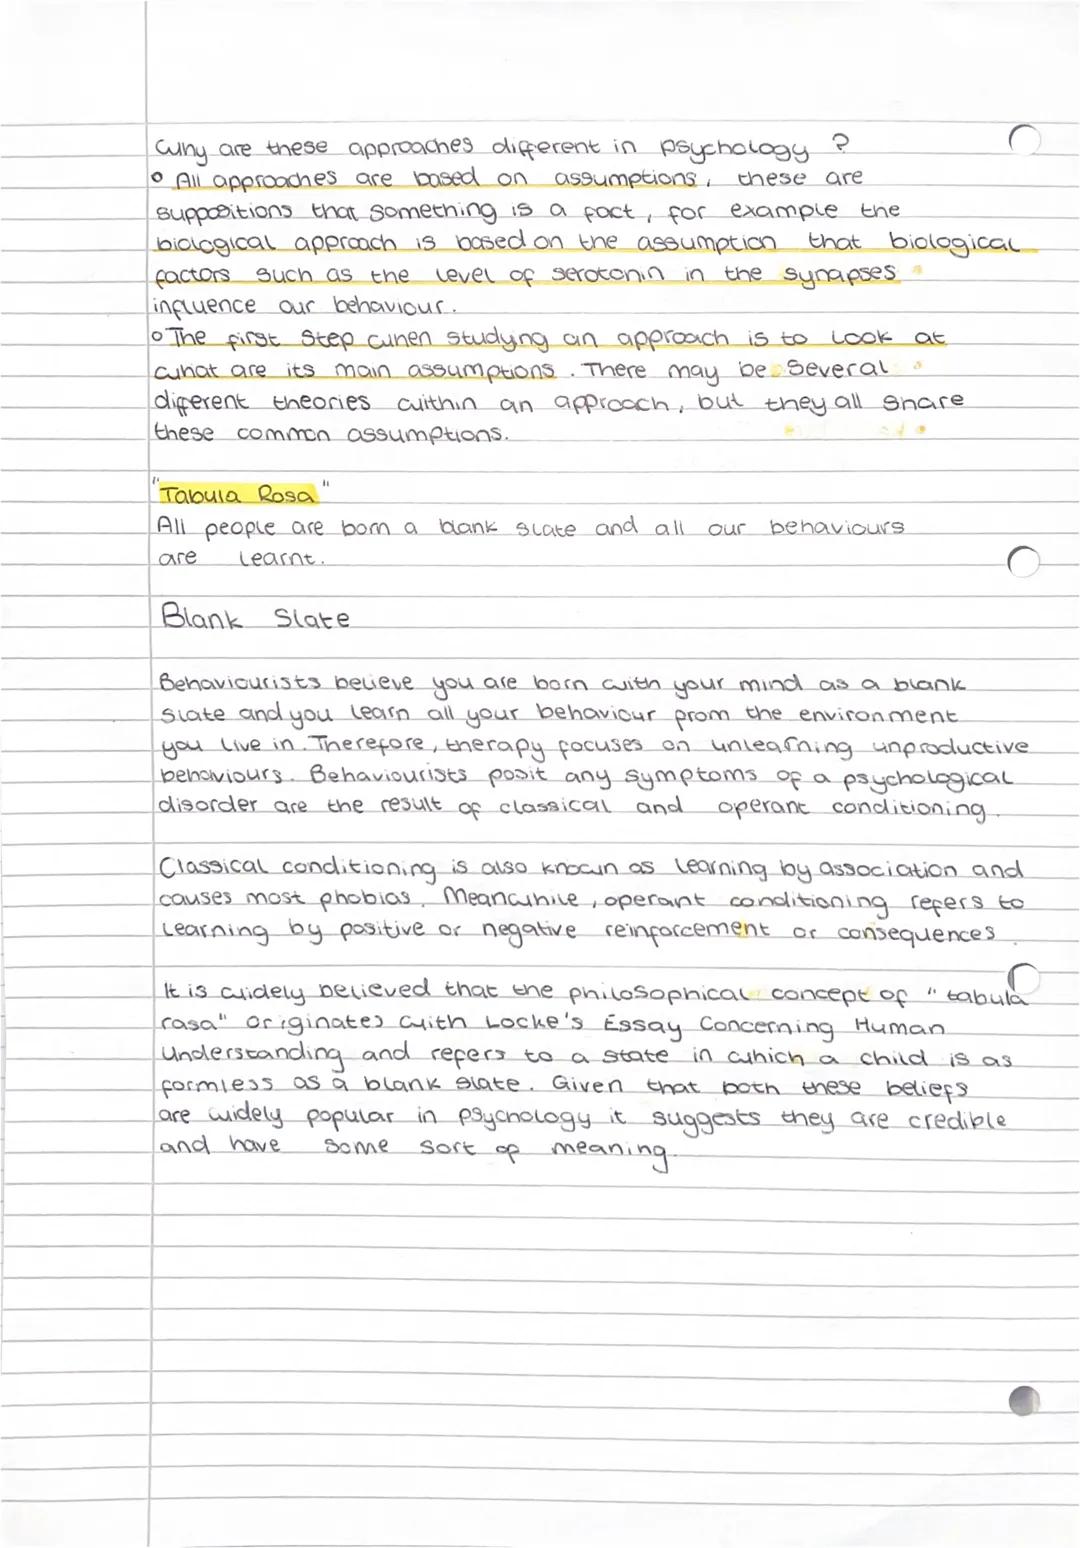 Why are these approaches different in psychology ?
• All approaches are based on assumptions, these are
suppositions that something is a fact, for example the
biological approach is based on the assumption that biological
factors such as the level of serotonin in the synapses
influence our behaviour.
• The first step when studying an approach is to look at
what are its main assumptions. There may be several
different theories within an approach, but they all share
these common assumptions.
"Tabula Rosa"
All people are born a blank slate and all our behaviours
are learnt.
Blank Slate
Behaviourists believe you are born with your mind as a blank
slate and you learn all your behaviour from the environment
you live in. Therefore, therapy focuses on unlearning unproductive
behaviours. Behaviourists posit any symptoms of a psychological
disorder are the result of classical and operant conditioning.
Classical conditioning is also known as learning by association and
causes most phobias. Meanwhile, operant conditioning refers to
learning by positive or negative reinforcement or consequences.
It is widely believed that the philosophical concept of "tabula
rasa" originates with Locke's Essay Concerning Human
Understanding and refers to a state in which a child is as
formless as a blank slate. Given that both these beliefs
are widely popular in psychology it suggests they are credible
and have some sort of meaning.